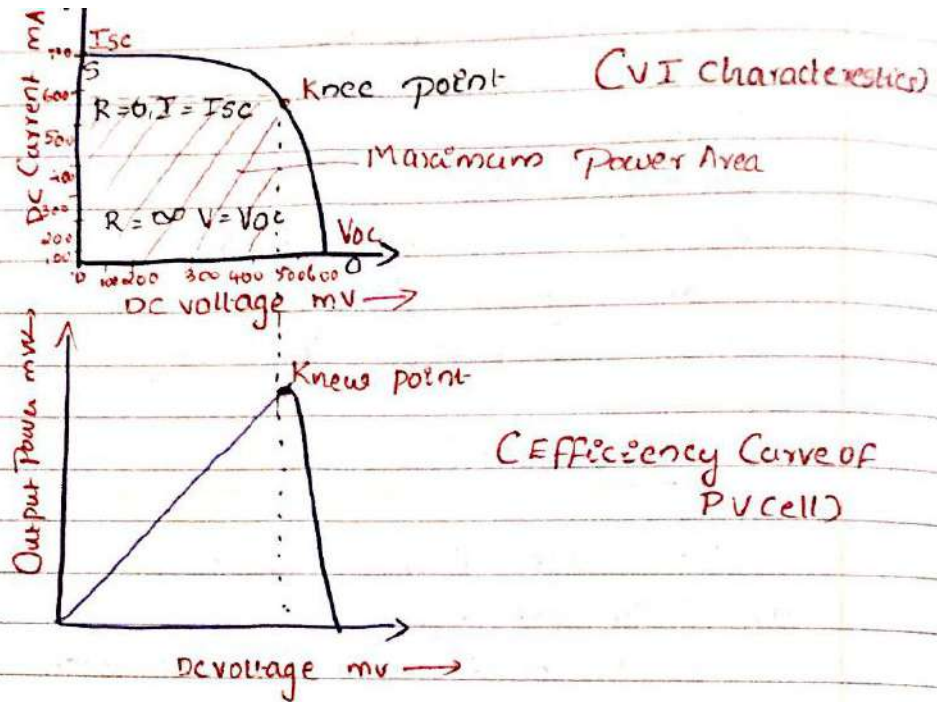 DC Current mA
Isc
700
S
600
500
400
300
200
100
R=0, I = Isc
R = ∞ V = Voc
Knee point
(VI Characterestics)
Maximum Power Area
Voc
0 100 200 300 400 500 600 0
DC voltage mv
Output Power mw
Knew point
(Efficiency Curve of
PV Cell)
DC voltage mv